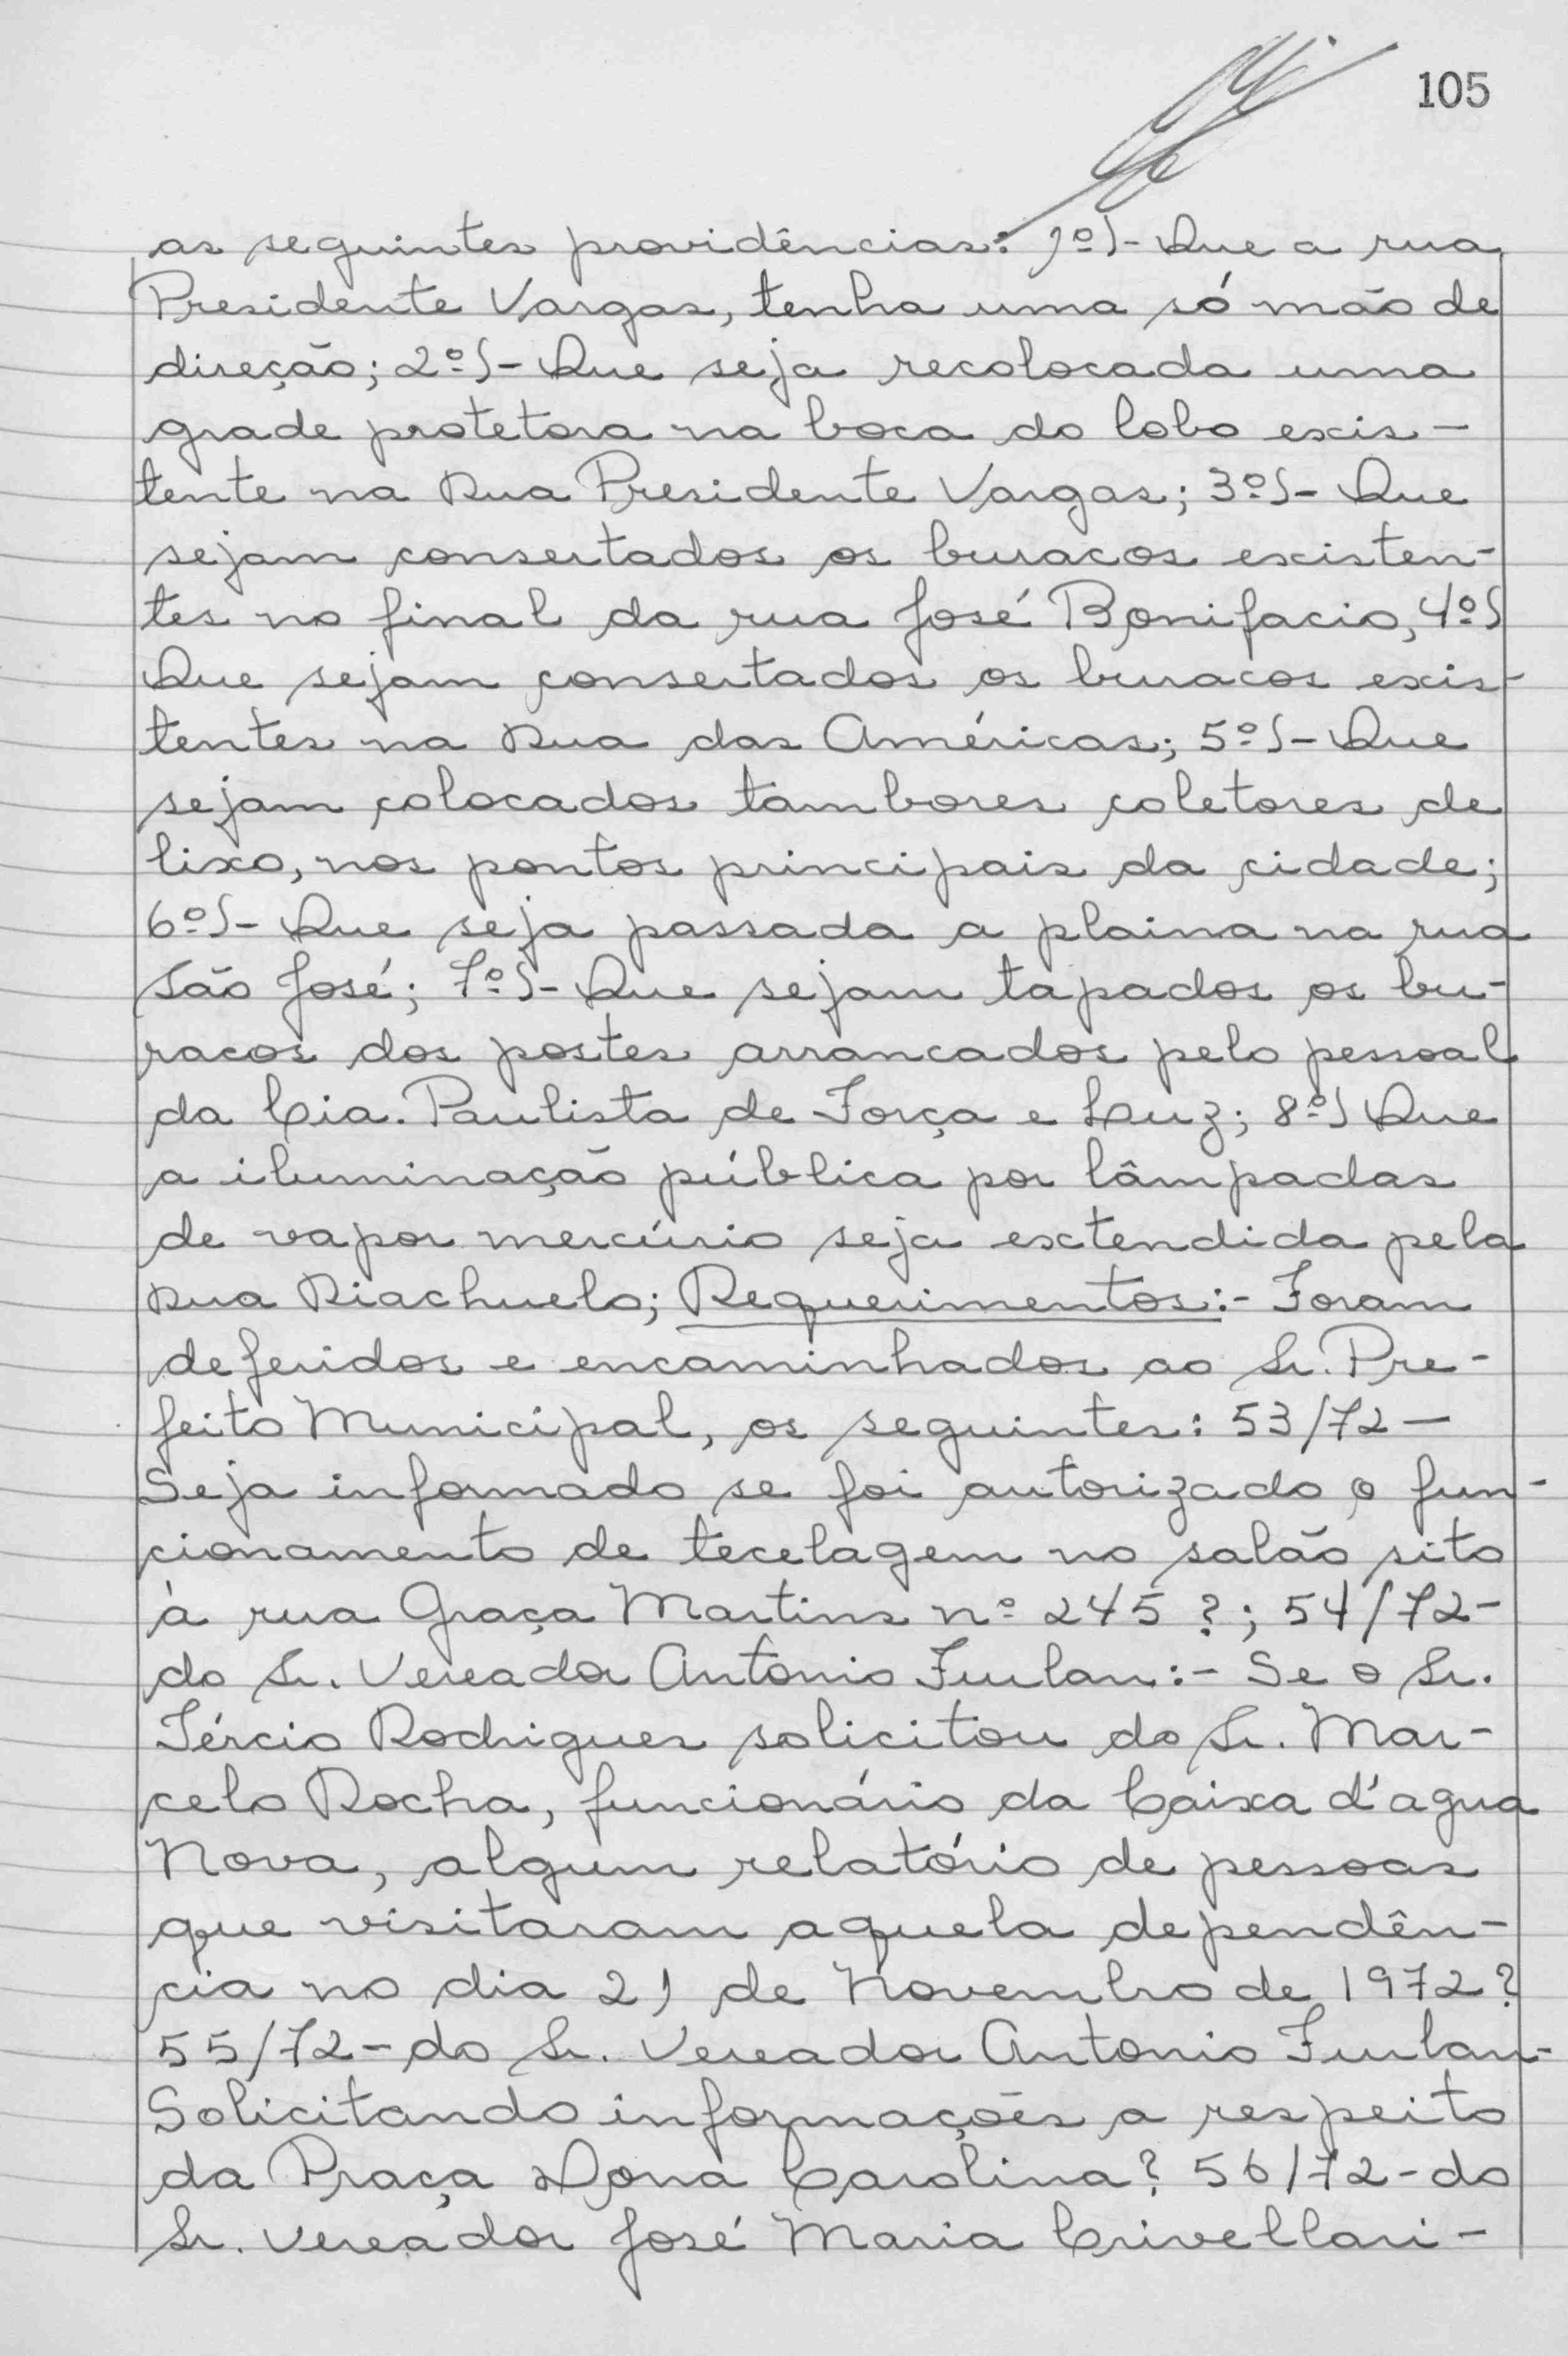 105
as seguintes providências: 1º)- Que a rua
Presidente Vargas, tenha uma só mão de
direção; 2º)- Que seja recolocada uma
grade protetora na boca do lobo exis-
tente na Rua Presidente Vargas; 3º)- Que
sejam consertados os buracos existen-
tes no final da rua José Bonifacio, 4º)
Que sejam consertados os buracos exis-
tentes na Rua das Américas; 5º)- Que
sejam colocados tambores coletores de
lixo, nos pontos principais da cidade;
6º)- Que seja passada a plaina na rua
São José; 7º)- Que sejam tapados os bu-
racos dos postes arrancados pelo pessoal
da Cia. Paulista de Força e Luz; 8º) Que
a iluminação pública por lâmpadas
de vapor mercúrio seja extendida pela
Rua Riachuelo; Requerimentos:- Foram
deferidos e encaminhados ao Sr. Pre-
feito Municipal, os seguintes: 53/72-
Seja informado se foi autorizado o fun-
cionamento de tecelagem no salão sito
à rua Graça Martins nº 245?; 54/72-
do Sr. Vereador Antonio Furlan:- Se o Sr.
Tércio Rodrigues solicitou do Sr. Mar-
celo Rocha, funcionário da Caixa d'agua
Nova, algum relatório de pessoas
que visitaram aquela dependên-
cia no dia 21 de Novembro de 1972?
55/72-do Sr. Vereador Antonio Furlan-
Solicitando informações a respeito
da Praça Dona Carolina? 56/72-do
Sr. Vereador José Maria Crivellari-